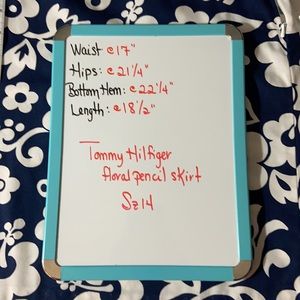 Waist c 17"
Hips: c 21 1/4"
Bottom Hem: c 22 1/4"
Length: c 18 1/2"
Tommy Hilfiger
floral pencil skirt
Sz 14